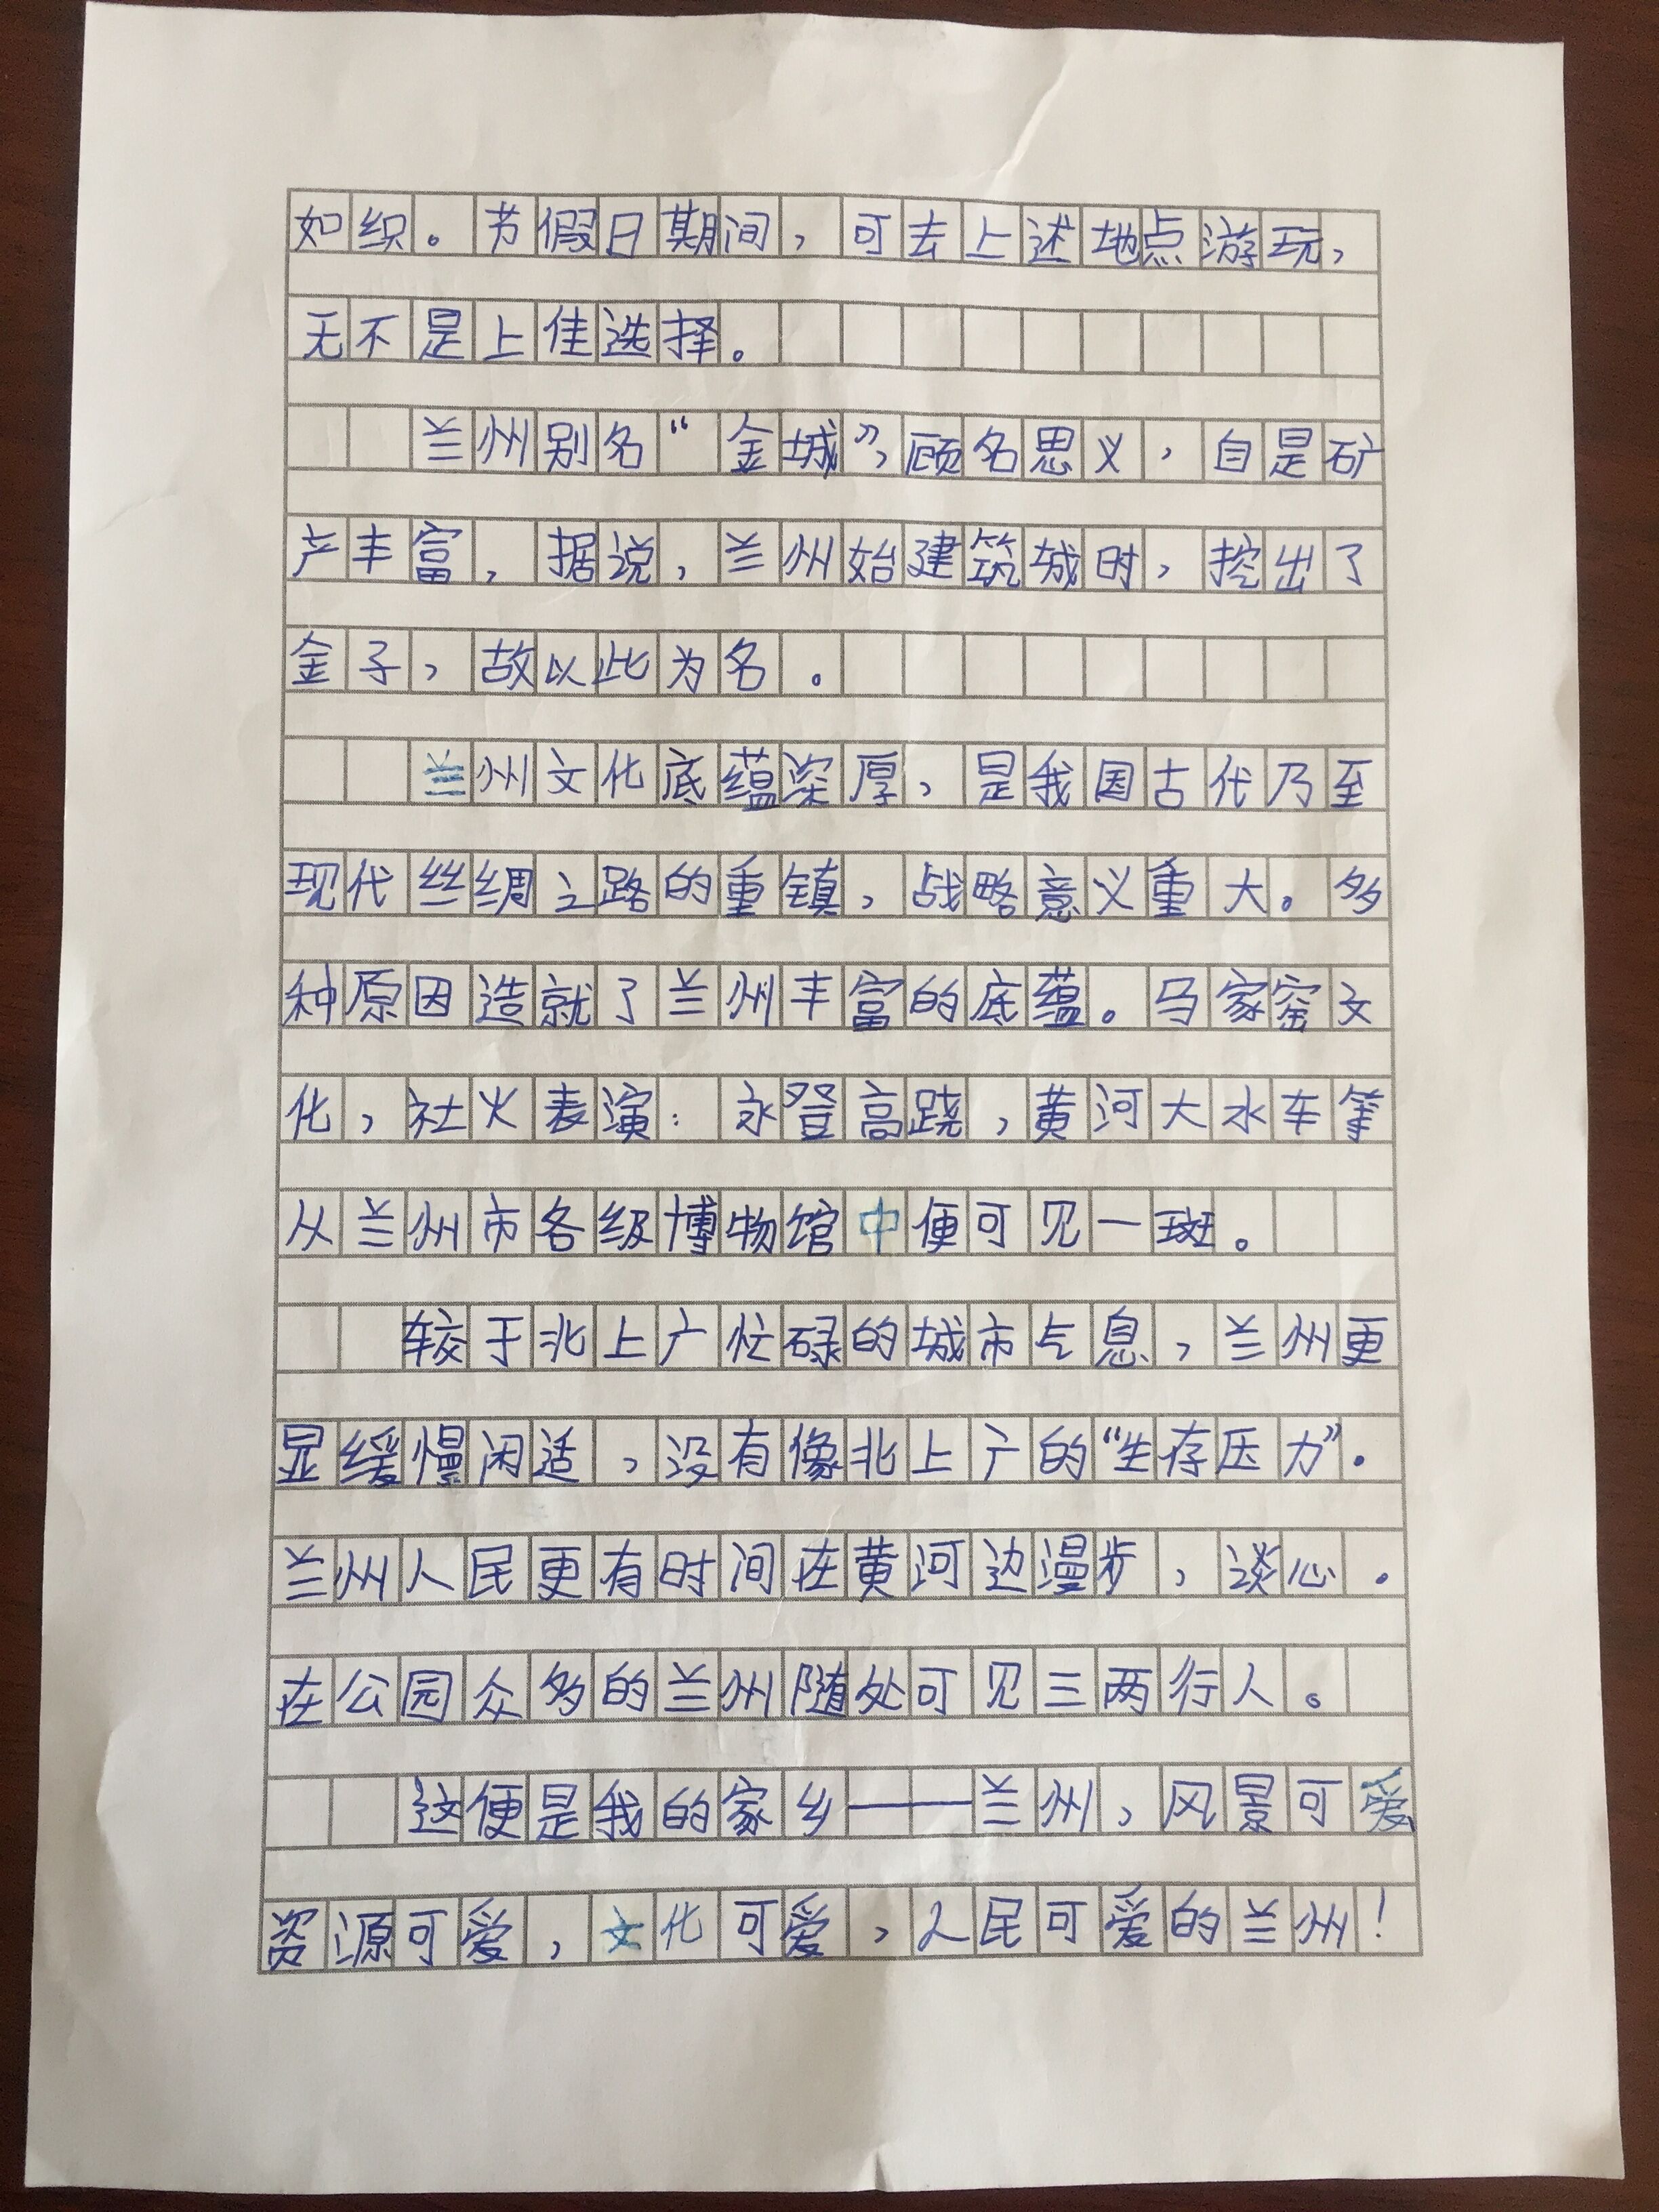 如织。节假日期间，可去上述地点游玩，
无不是上佳选择。
兰州别名“金城”，顾名思义，自是矿
产丰富，据说，兰州始建筑城时，挖出了
金子，故以此为名。
兰州文化底蕴深厚，是我国古代乃至
现代丝绸之路的重镇，战略意义重大。多
种原因造就了兰州丰富的底蕴。马家窑文
化，社火表演：永登高跷，黄河大水车等
从兰州市各级博物馆中便可见一斑。
较于北上广忙碌的城市气息，兰州更
显缓慢闲适，没有像北上广的“生存压力”.
兰州人民更有时间在黄河边漫步，谈心.
在公园众多的兰州随处可见三两行人。
这便是我的家乡——兰州，风景可爱
资源可爱，文化可爱，人民可爱的兰州！